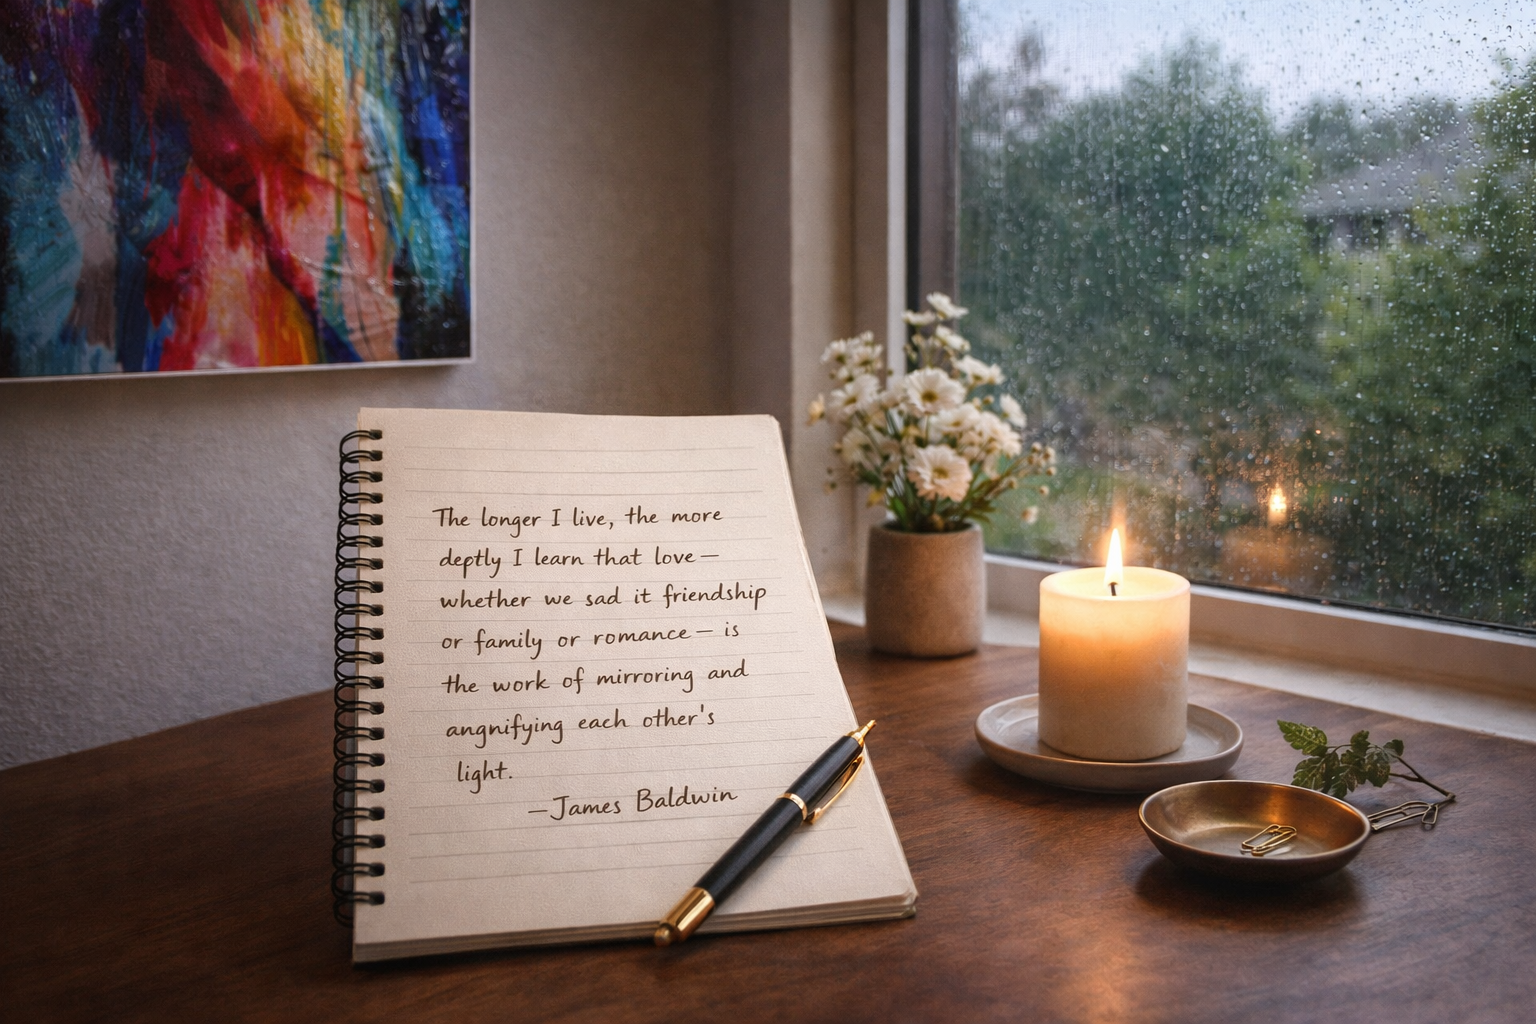 The longer I live, the more
deptly I learn that love—
whether we sad it friendship
or family or romance— is
the work of mirroring and
angnifying each other's
light.
—James Baldwin